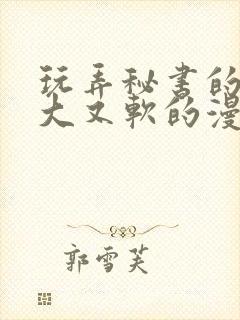 玩弄秘书的
大又軟的漫
郭雪芙